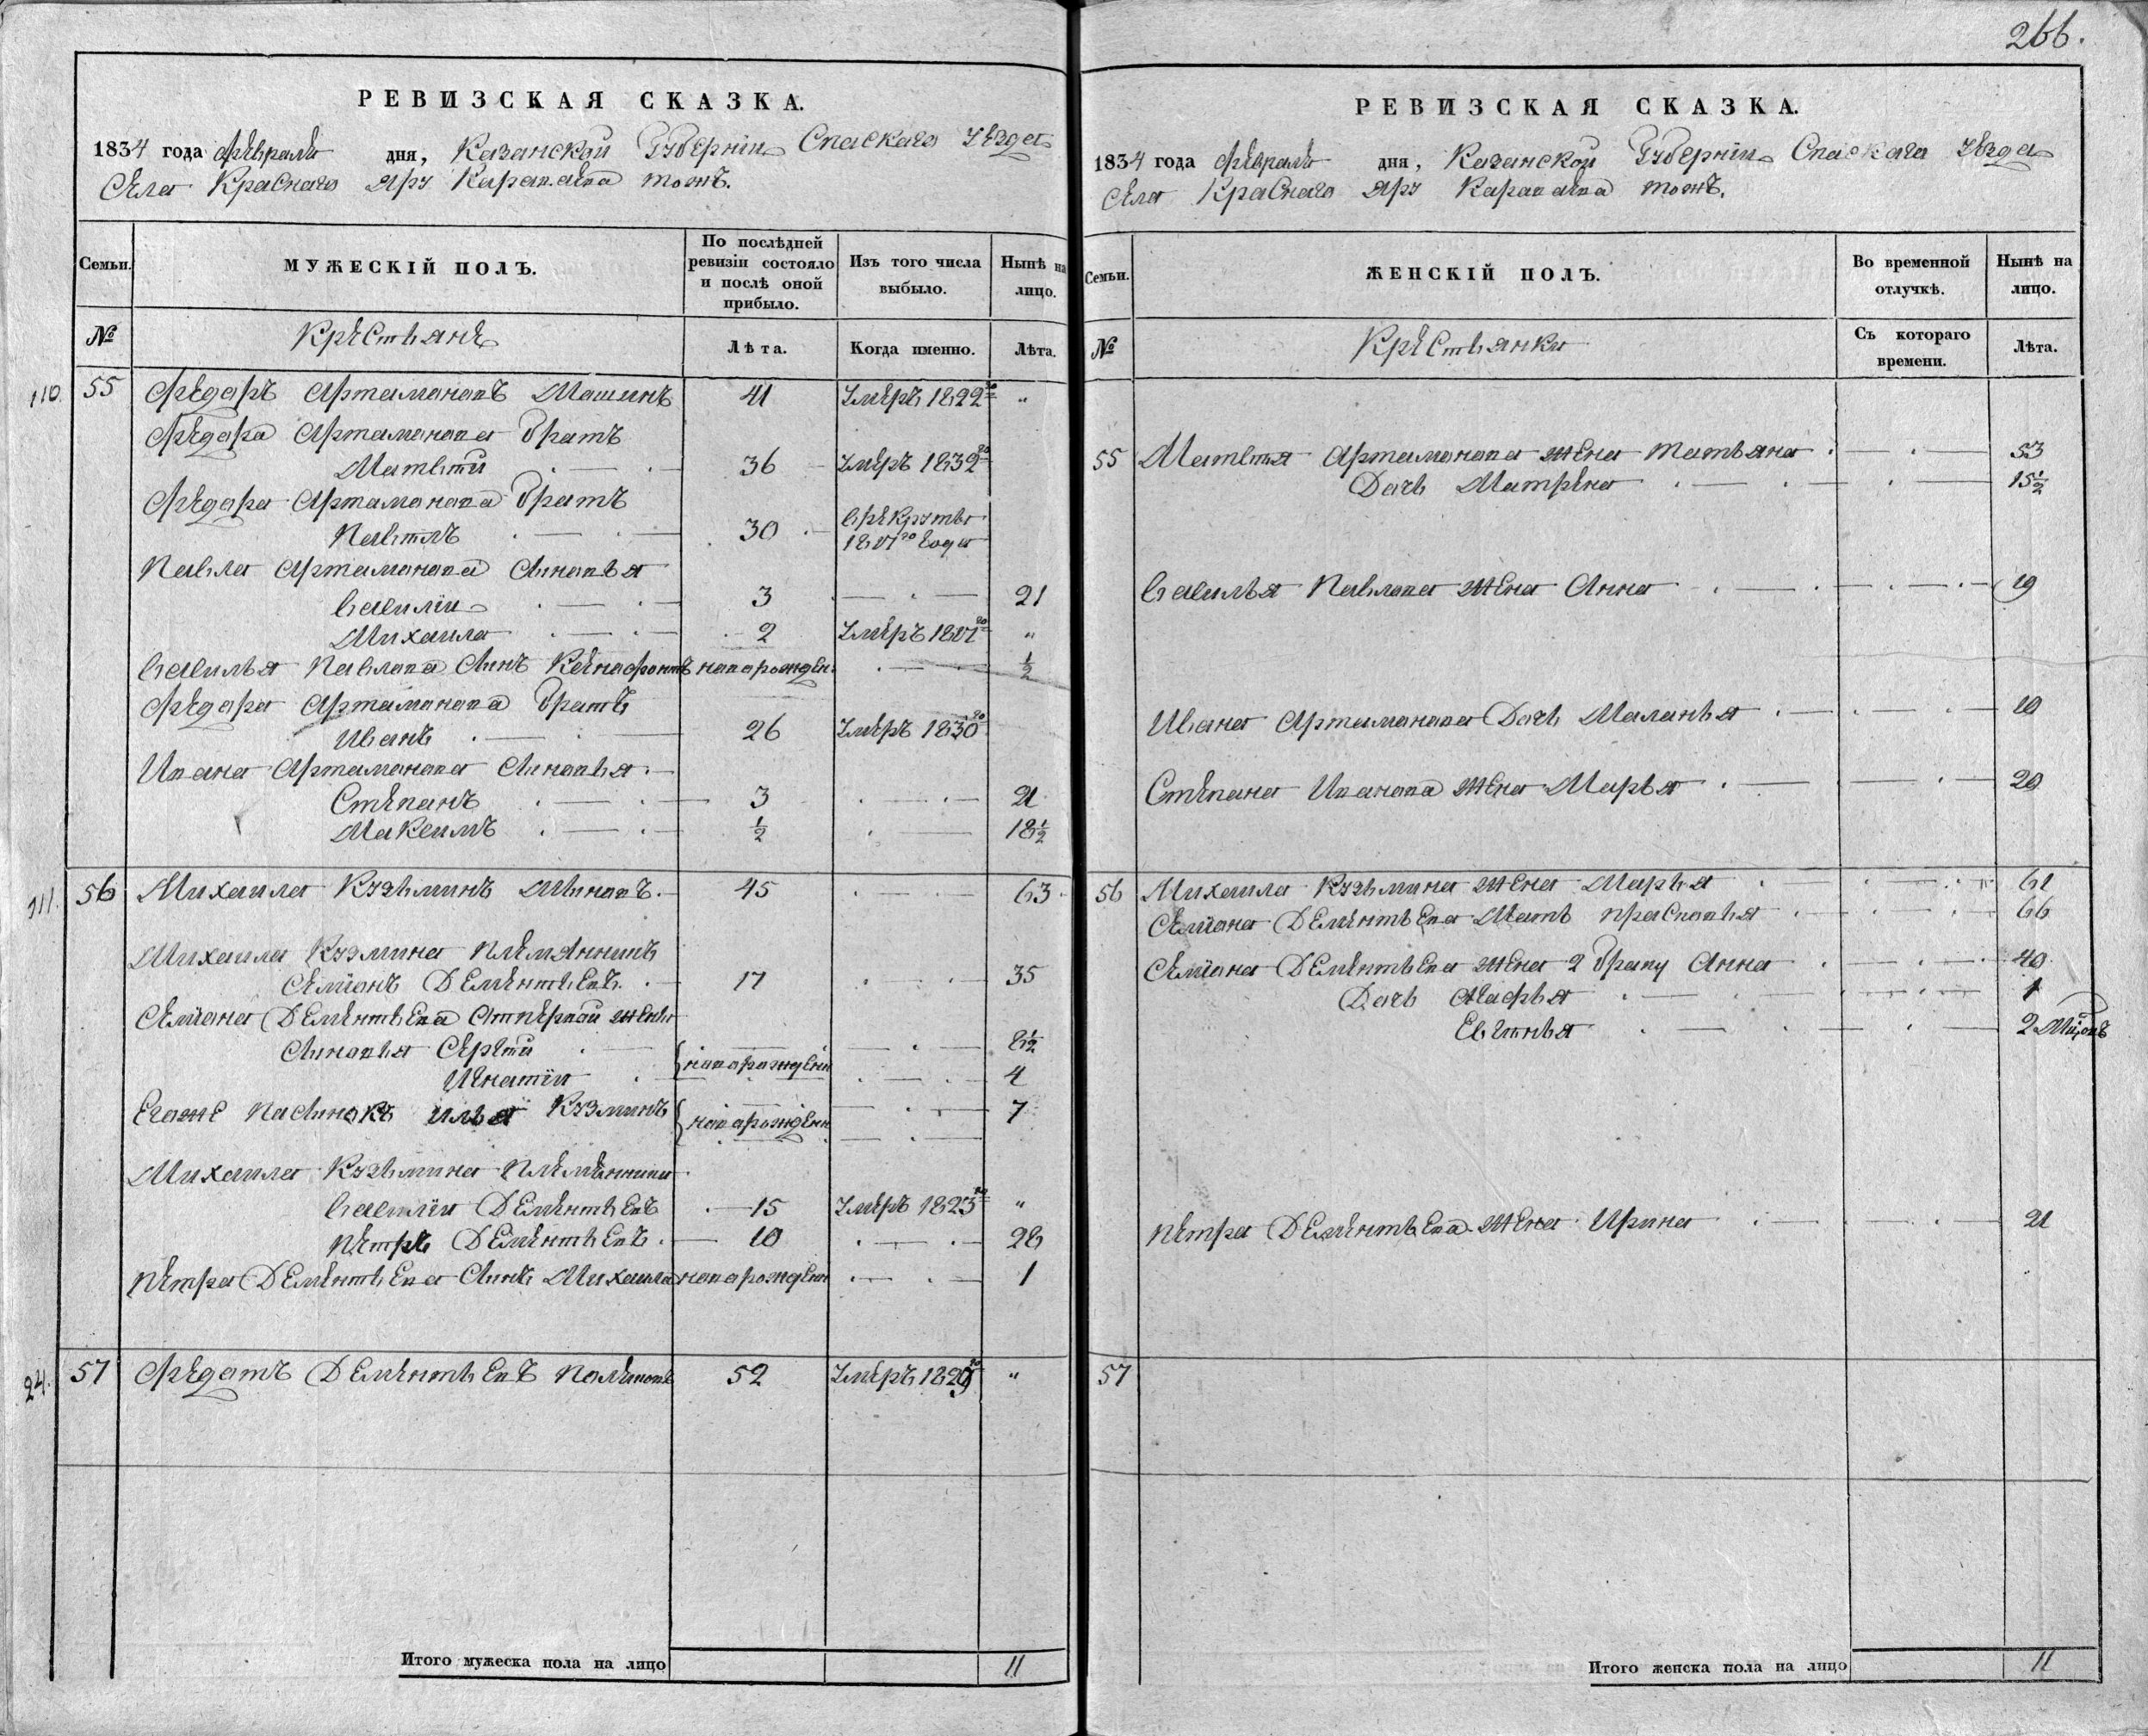 266.
РЕВИЗСКАЯ СКАЗКА.
1834 года февраля дня, Казанской Губернiи Спаскаго уезда
Села Краснаго Яру тожъ.
Семьи.
МУЖЕСКІЙ ПОЛЪ.
По послѣдней ревизіи состояло и послѣ оной прибыло.
Изъ того числа выбыло.
Нынѣ на лицо.
№
Крестьяне
Лѣта.
Когда именно.
Лѣта.
110. 55 Федоръ Артамоновъ Машинъ 41 Умеръ 1822го "
Федора Артамонова братъ
Матвей 36 Умеръ 1832го
Федора Артамонова братъ
Павелъ 30 годы
Павла Артамонова Сыновья
Василiи 3 21
Михаила 2 Умеръ "
Василья Павлова Сынъ новорожден. ½
Федора Артамонова братъ
Иванъ 26 Умеръ 1830го
Ивана Артамонова Сыновья
Степанъ 3 21
Максимъ ½ 18½
111. 56 Михаила Кузьминъ 45 63
Михаила Кузмина племянникъ
Семiонъ Дементьевъ 17 35
Семiона Дементьева отпервой жены
Сыновья Сергей новорожденн 8½
Игнатiи 4
Егоже пасынокъ Илья Кузминъ новорожденн 7
Михаила Кузьмина племенники
Василiи Дементьевъ 15 Умеръ 1823го "
Петръ Дементьевъ 10 28
Петра Дементьева Сынъ Михаила новорожденн 1
24. 57 Федотъ Дементьевъ 52 Умеръ "
Итого мужеска пола на лицо 11
РЕВИЗСКАЯ СКАЗКА.
1834 года февраля дня, Казанской Губернiи Спаскага уезда
Села Краснаго Яру тожъ.
Семьи.
ЖЕНСКІЙ ПОЛЪ.
Во временной отлучкѣ.
Нынѣ на лицо.
№
Крестьянки
Съ котораго времени.
Лѣта.
55 Матвея Артамонова жена Татьяна 53
Дочь Матрена 15½
Василья Павлова жена Анна 19
Ивана Артамонова Дочь Маланья 10
Степана Иванова жена Марья 20
56 Михаила Кузьмина жена Марья 61
Семiона Дементьева Мать Прасковья 66
Семiона Дементьева жена 2 браку Анна 40
Дочь Агафья 1
Евгенья
Петра Дементьева жена Ирина 21
57
Итого женска пола на лицо 11